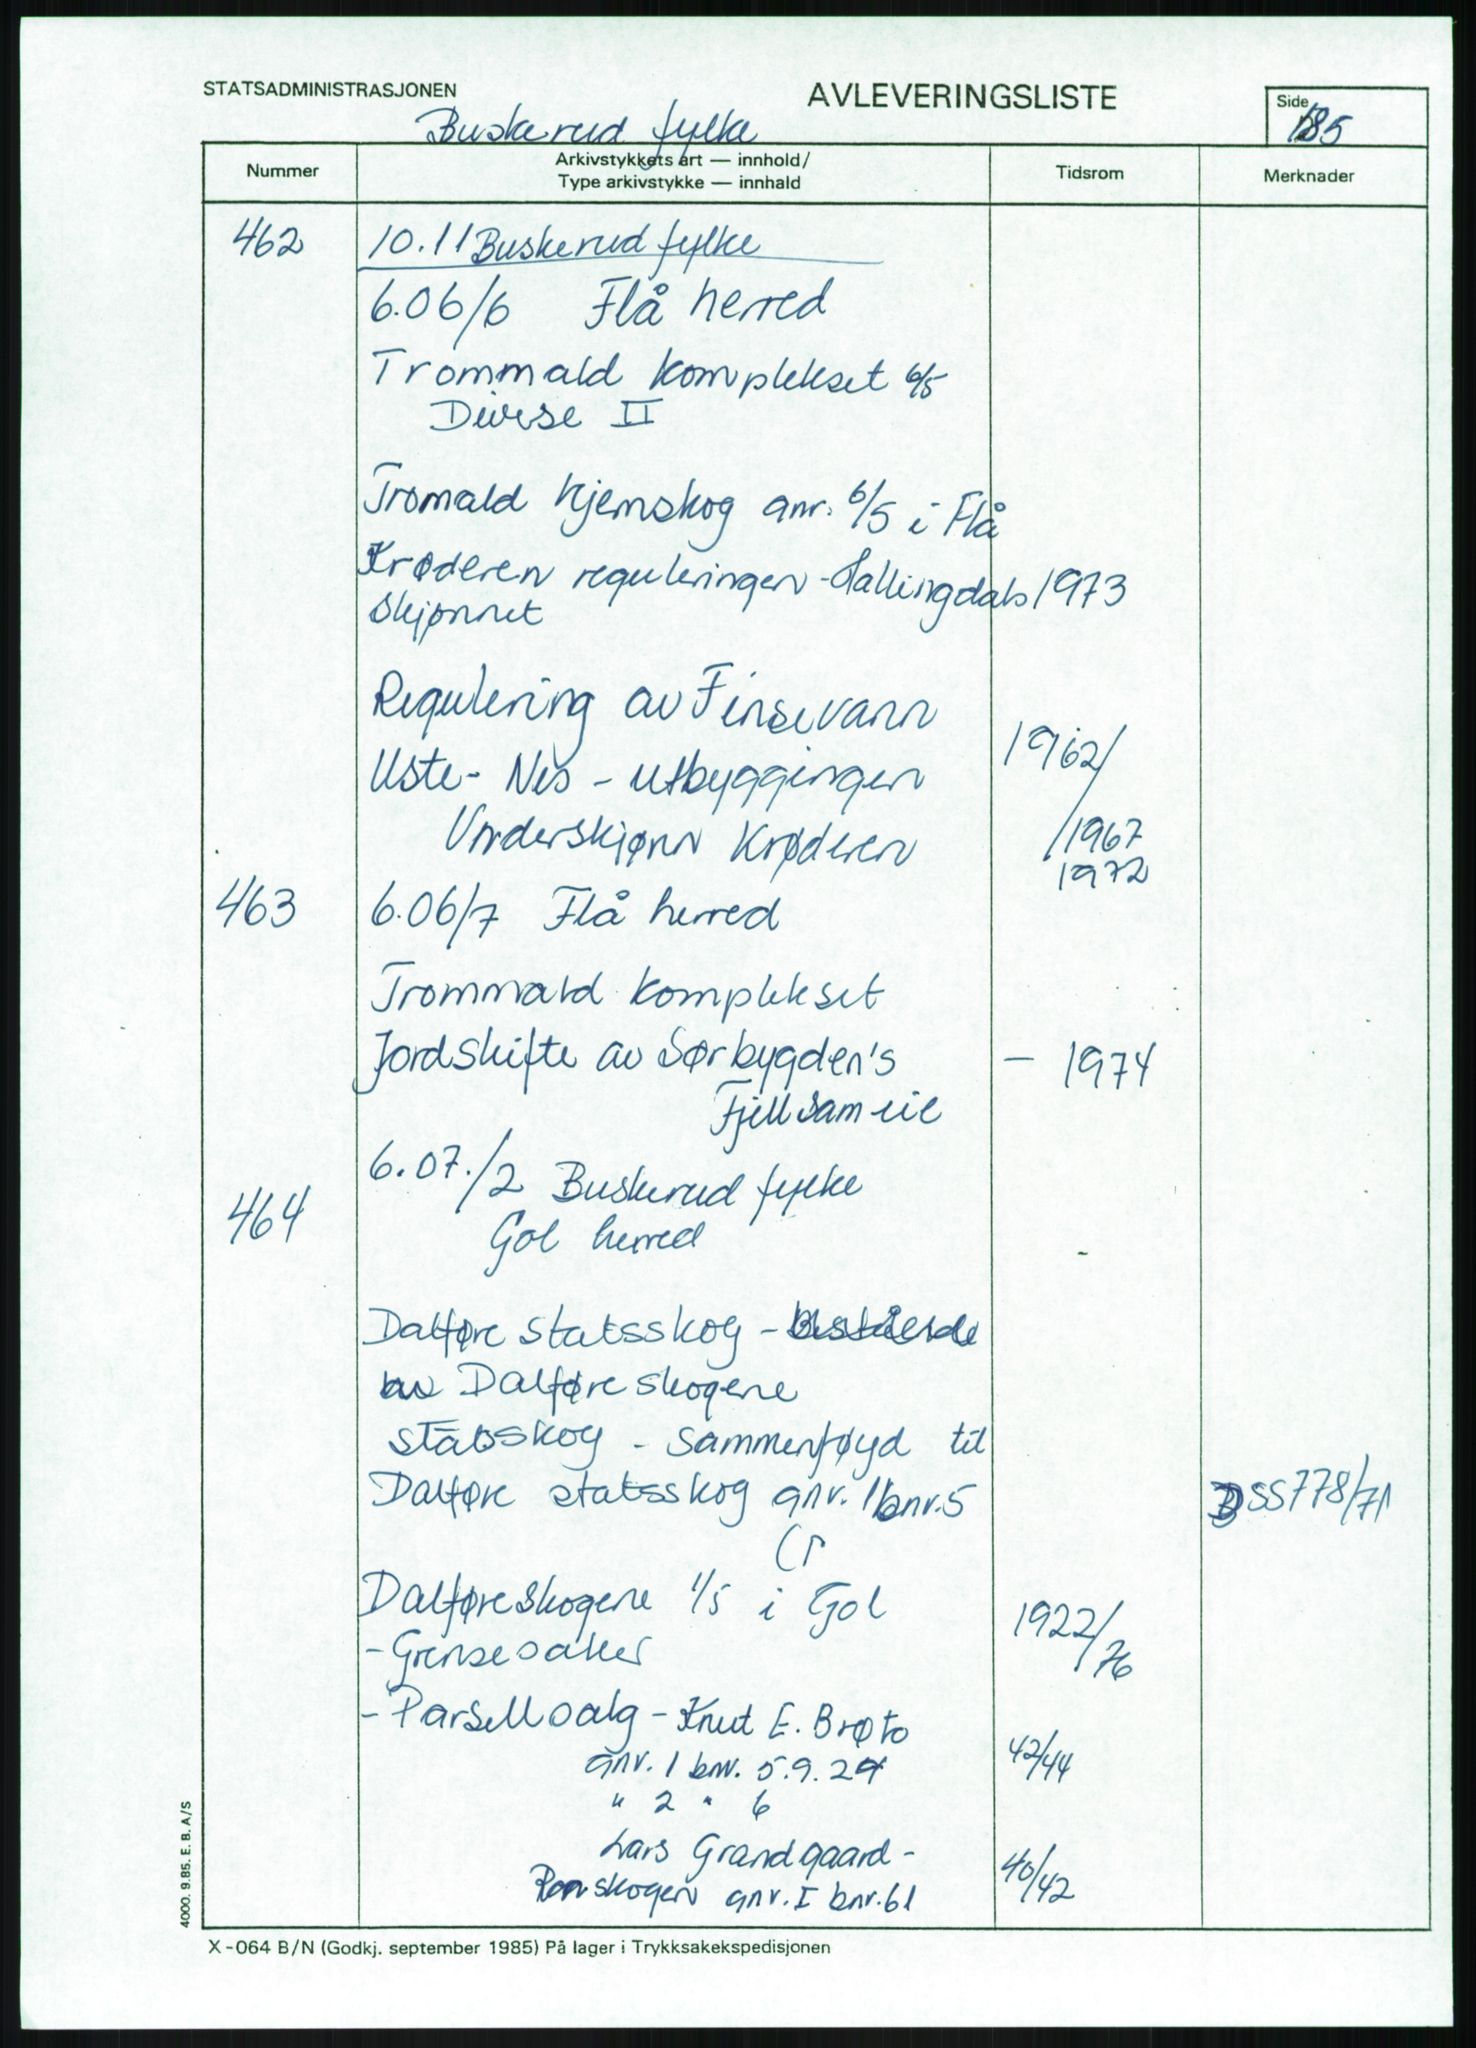 STATSADMINISTRASJONEN
AVLEVERINGSLISTE
Side
185
Buskerud fylke
Nummer
Arkivstykkets art — innhold/
Type arkivstykke — innhald
Tidsrom
Merknader
462 10.11 Buskerud fylke
6.06/6 Flå herred
Trommald komplekset 6/5
Diverse II
Tromald hjemskog gnr. 6/5 i Flå
Krøderen reguleringen - Hallingdals 1973
skjønnet
Regulering av Finsevann
1962/
Uste - Nes - utbyggingen
/1967
Underskjønn Krøderen
1972
463 6.06/7 Flå herred
Trommald komplekset
Jordskifte av Sørbygden's — 1974
Fjellsameie
6.07./2 Buskerud fylke
464
Gol herred
Dalføre statsskog - bestående
av Dalføreskogene
statsskog - sammenføyd til
Dalføre statsskog gnr. 1 bnr. 5 DSS 778/71
Dalføreskogene 1/5 i Gol
1922/76
- Grensesaker
- Parsellsalg - Knut E. Brøto
gnr. 1 bnr. 5.9.24 42/44
" 2 " 6
Lars Grandgaard -
40/42
skogen gnr. I bnr. 61
4000. 9.85. E. B. A/S
X-064 B/N (Godkj. september 1985) På lager i Trykksakekspedisjonen